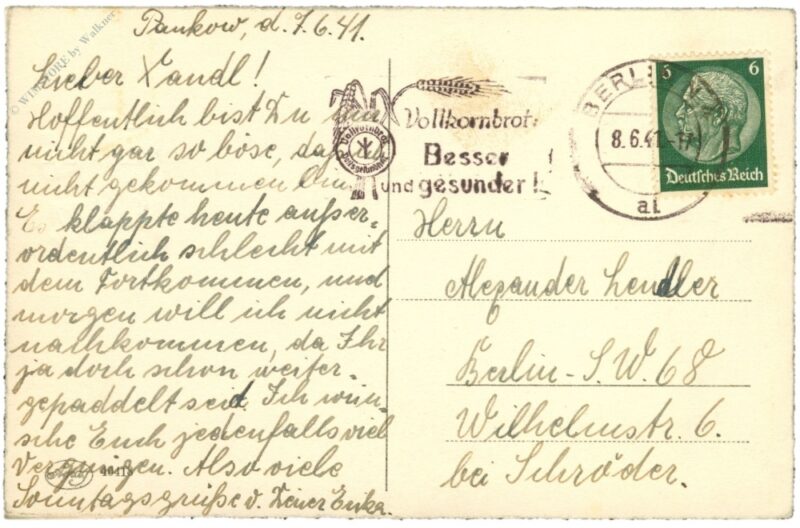 Pankow, d. 7.6.41.
Lieber Xandl!
Hoffentlich bist Du mir
nicht gar so böse, daß ich
nicht gekommen bin.
Es klappte heute außer-
ordentlich schlecht mit
dem Fortkommen, und
morgen will ich nicht
nachkommen, da Ihr
ja doch schon weiter-
gepaddelt seid. Ich wün-
sche Euch jedenfalls viel
Vergnügen. Also viele
Sonntagsgrüße v. Deiner Erika.
© WINSTORE by Walkner
Vollkornbrot
Vollkornbrot
Besser
und gesunder!
BERLIN
8.6.41.-17
al
6 6
Deutsches Reich
Herrn
Alexander Lendler
Berlin - S.W. 68
Wilhelmstr. 6.
bei Schröder.